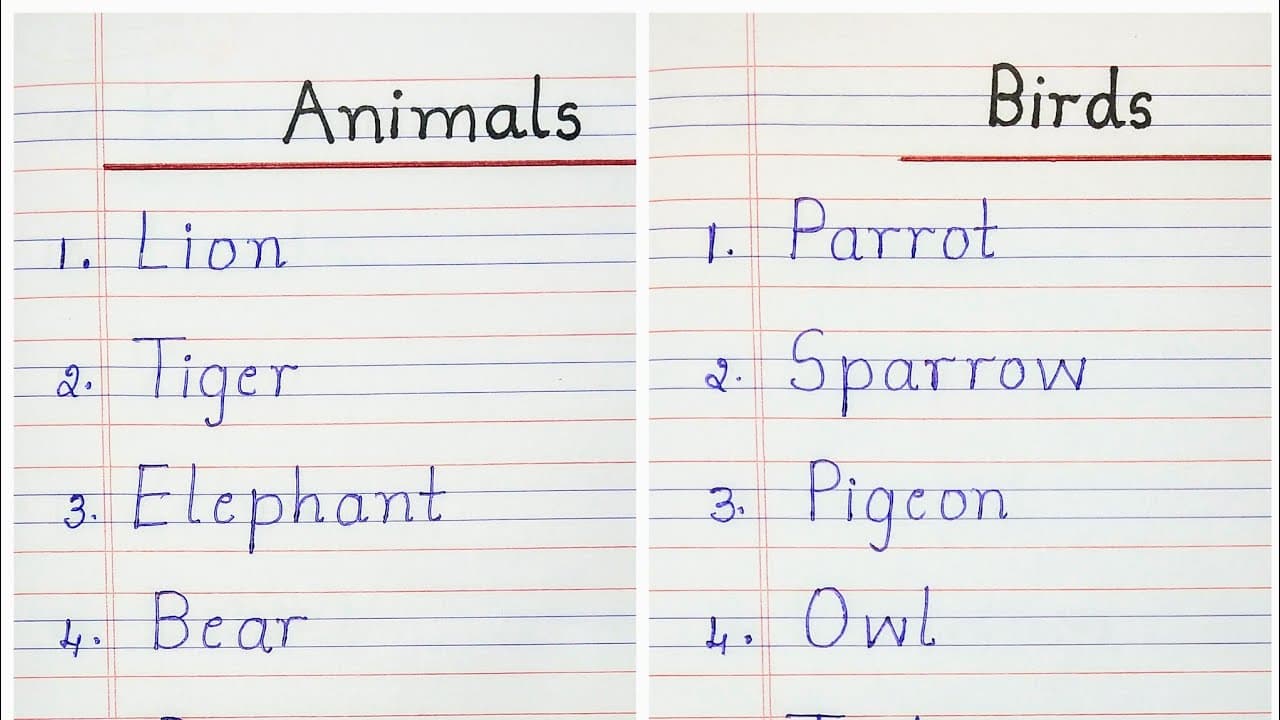 Animals
1. Lion
2. Tiger
3. Elephant
4. Bear
Birds
1. Parrot
2. Sparrow
3. Pigeon
4. Owl